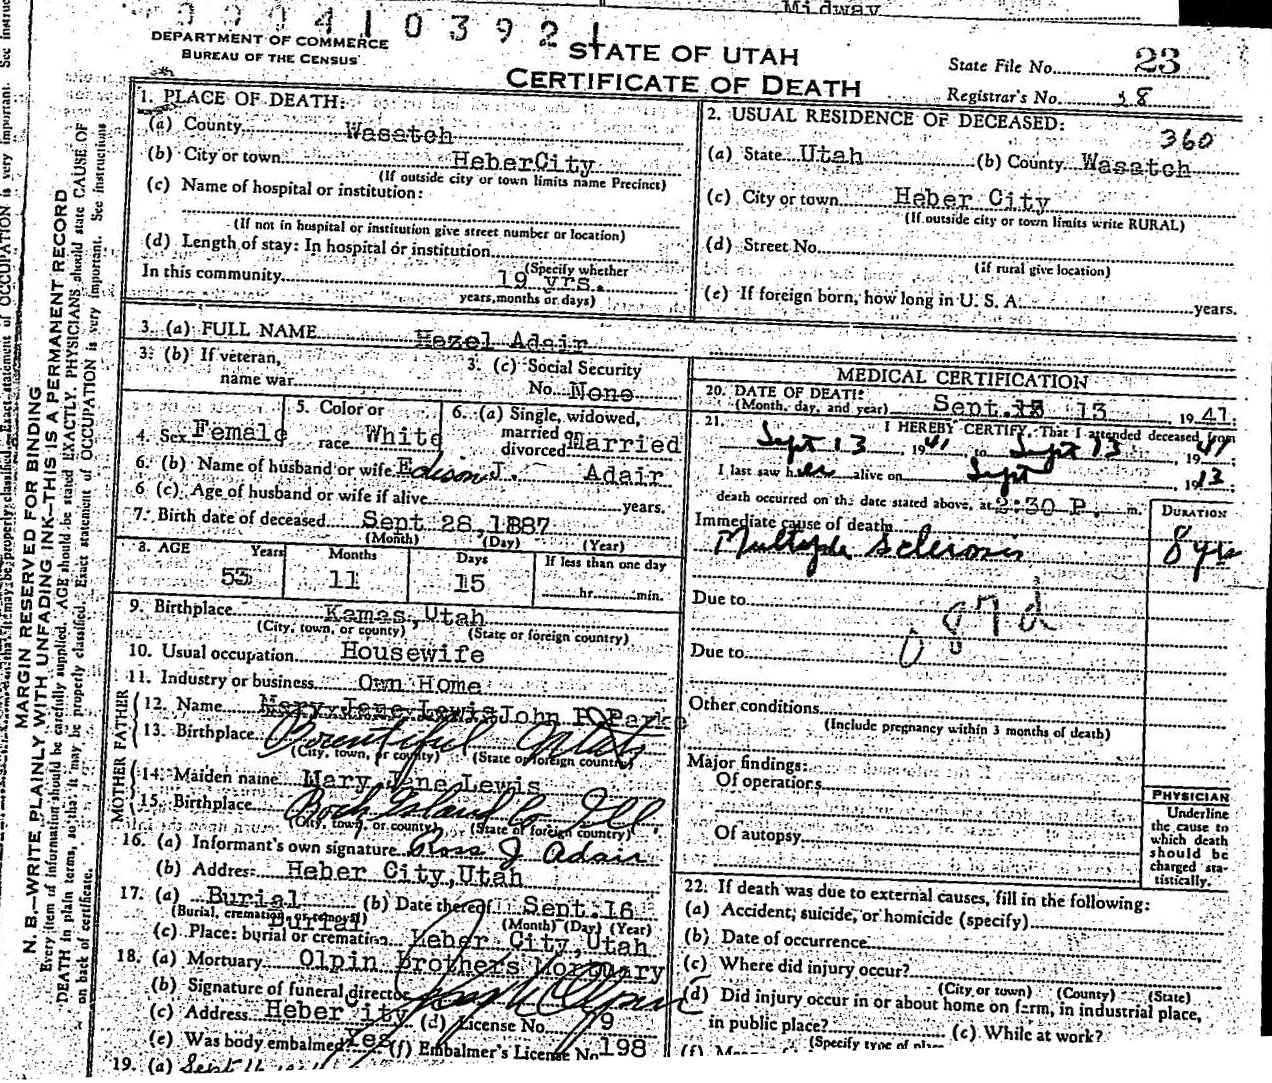 Midway
0 0 0 4 1 0 3 9 2 1
DEPARTMENT OF COMMERCE
BUREAU OF THE CENSUS
STATE OF UTAH
CERTIFICATE OF DEATH
State File No. 23
Registrar's No. 38
1. PLACE OF DEATH:
(a) County Wasatch
(b) City or town HeberCity
(If outside city or town limits name Precinct)
(c) Name of hospital or institution:
(If not in hospital or institution give street number or location)
(d) Length of stay: In hospital or institution
(Specify whether
In this community 19 yrs.
years, months or days)
2. USUAL RESIDENCE OF DECEASED:
360
(a) State Utah (b) County Wasatch
(c) City or town Heber City
(If outside city or town limits write RURAL)
(d) Street No.
(if rural give location)
(e) If foreign born, how long in U. S. A. years.
3. (a) FULL NAME Hazel Adair
3. (b) If veteran,
name war
3. (c) Social Security
No. None
4. Sex Female
5. Color or
race White
6. (a) Single, widowed,
married or
divorced Married
6. (b) Name of husband or wife Edison J. Adair
6 (c). Age of husband or wife if alive years.
7. Birth date of deceased Sept 28, 1887
(Month) (Day) (Year)
8. AGE Years Months Days If less than one day
53 11 15 hr. min.
9. Birthplace Kamas, Utah
(City, town, or county) (State or foreign country)
10. Usual occupation Housewife
11. Industry or business Own Home
FATHER
12. Name Mary Jane Lewis John P Parke
13. Birthplace Bountiful Utah
(City, town, or county) (State or foreign country)
MOTHER
14. Maiden name Mary Jane Lewis
15. Birthplace Rock Island Co Ill
(City, town, or county) (State or foreign country)
16. (a) Informant's own signature Ross J Adair
(b) Address Heber City, Utah
17. (a) Burial (b) Date thereof Sept. 16
(Burial, cremation, or removal) (Month) (Day) (Year)
Burial
(c) Place: burial or cremation Heber City, Utah
18. (a) Mortuary Olpin Brothers Mortuary
(b) Signature of funeral director
(c) Address Heber ity (d) License No. 79
(e) Was body embalmed Yes (f) Embalmer's License No 198
19. (a) Sept 16
MEDICAL CERTIFICATION
20. DATE OF DEATH:
(Month, day, and year) Sept. 13 13 1941:
21. I HEREBY CERTIFY, That I attended deceased from
Sept 13, 1941, to Sept 13, 1941;
I last saw her alive on Sept 1913;
death occurred on the date stated above, at 2:30 P. m.
DURATION
Immediate cause of death
Multiple Sclerosis 8 yrs
Due to
087d
Due to
Other conditions
(Include pregnancy within 3 months of death)
Major findings:
Of operations
Of autopsy
PHYSICIAN
Underline
the cause to
which death
should be
charged sta-
tistically.
22. If death was due to external causes, fill in the following:
(a) Accident, suicide, or homicide (specify)
(b) Date of occurrence
(c) Where did injury occur?
(City or town) (County) (State)
(d) Did injury occur in or about home on farm, in industrial place,
in public place? (e) While at work?
(Specify type of place
MARGIN RESERVED FOR BINDING
N. B.—WRITE PLAINLY WITH UNFADING INK—THIS IS A PERMANENT RECORD
Every item of information should be carefully supplied. AGE should be stated EXACTLY. PHYSICIANS should state CAUSE OF
DEATH in plain terms, so that it may be properly classified. Exact statement of OCCUPATION is very important. See instructions
on back of certificate.